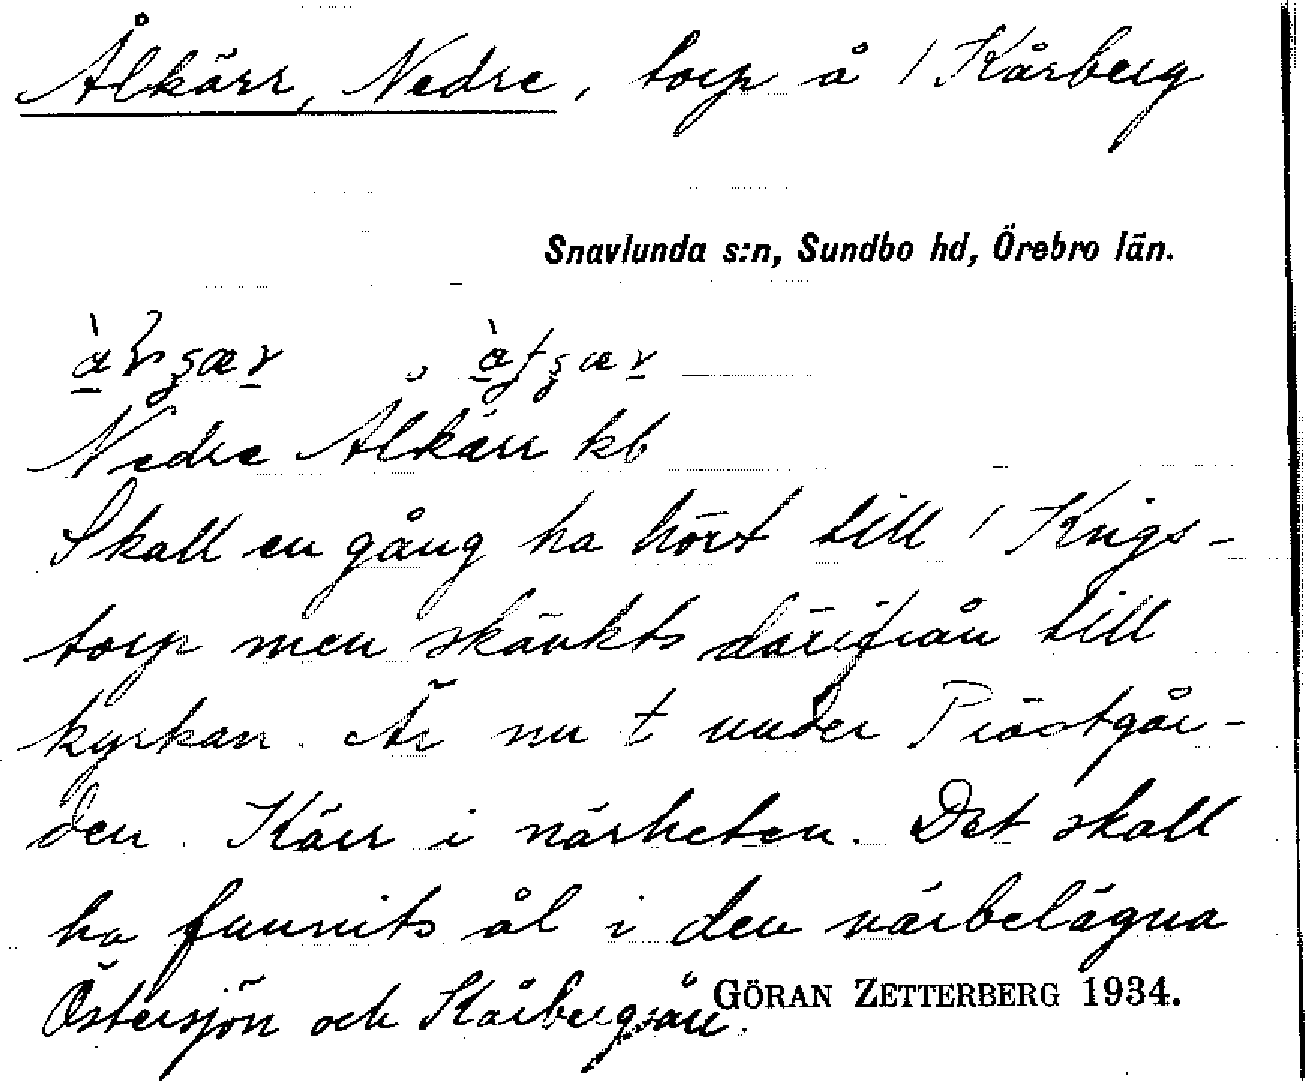 Ålkärr, Nedre, torp å / Kårberg
Snavlunda s:n, Sundbo hd, Örebro län.
Nedre Ålkärr kb
Skall en gång ha hört till / Krigs-
torp men skänkts därifrån till
kyrkan. Är nu t under Prästgår-
den. Kärr i närheten. Det skall
ha funnits ål i den närbelägna
Östersjön och Kårbergsån.
GÖRAN ZETTERBERG 1934.